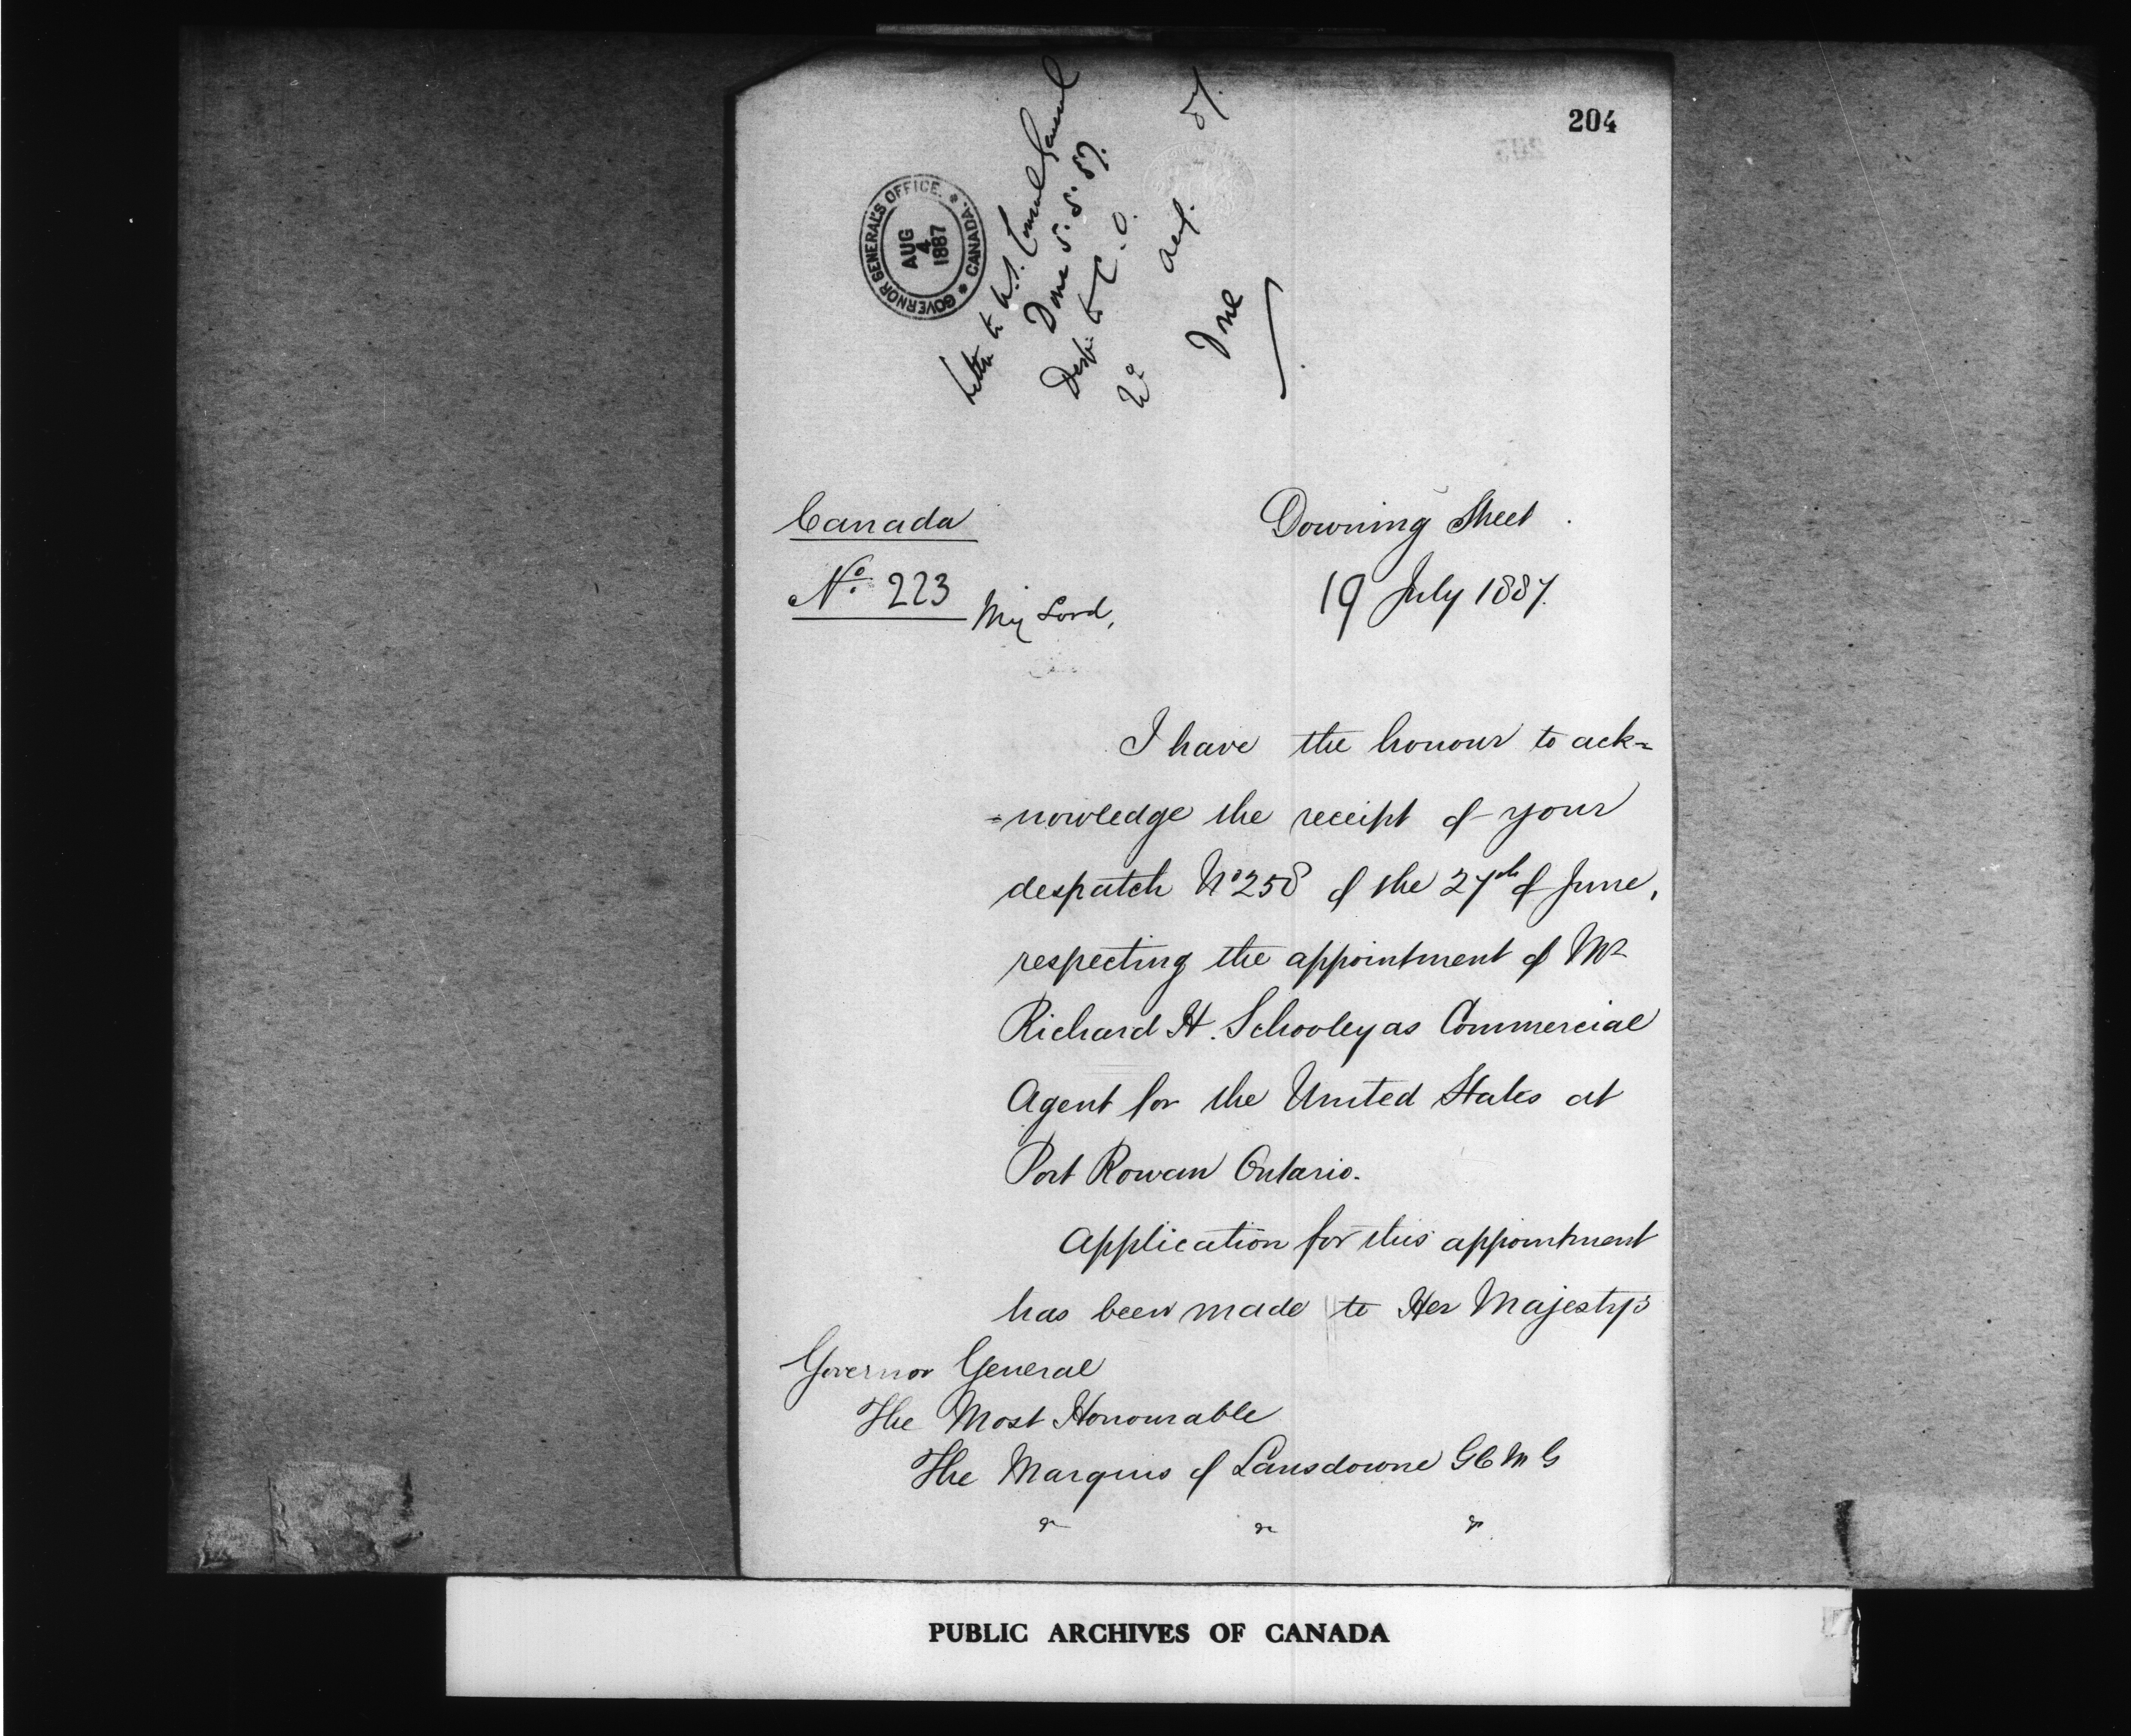 204
GOVERNOR GENERAL'S OFFICE. * CANADA. *
AUG
4
1887
Letter to U.S. Consul General
Done 5. 8. 87.
Desp: to C.O.
No
Canada
Downing Street.
No. 223
19 July 1887.
My Lord,
I have the honour to ack=
=nowledge the receipt of your
despatch No 258 of the 27th of June,
respecting the appointment of Mr
Richard H. Schooley as Commercial
Agent for the United States at
Port Rowan Ontario.
Application for this appointment
has been made to Her Majesty's
Governor General
The Most Honourable
The Marquis of Lansdowne GCMG
PUBLIC ARCHIVES OF CANADA